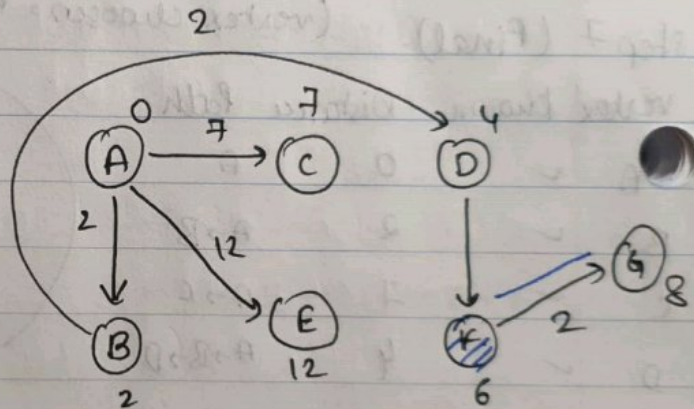 2
0
7
4
A
7
C
D
2
12
G
8
B
E
2
2
12
6